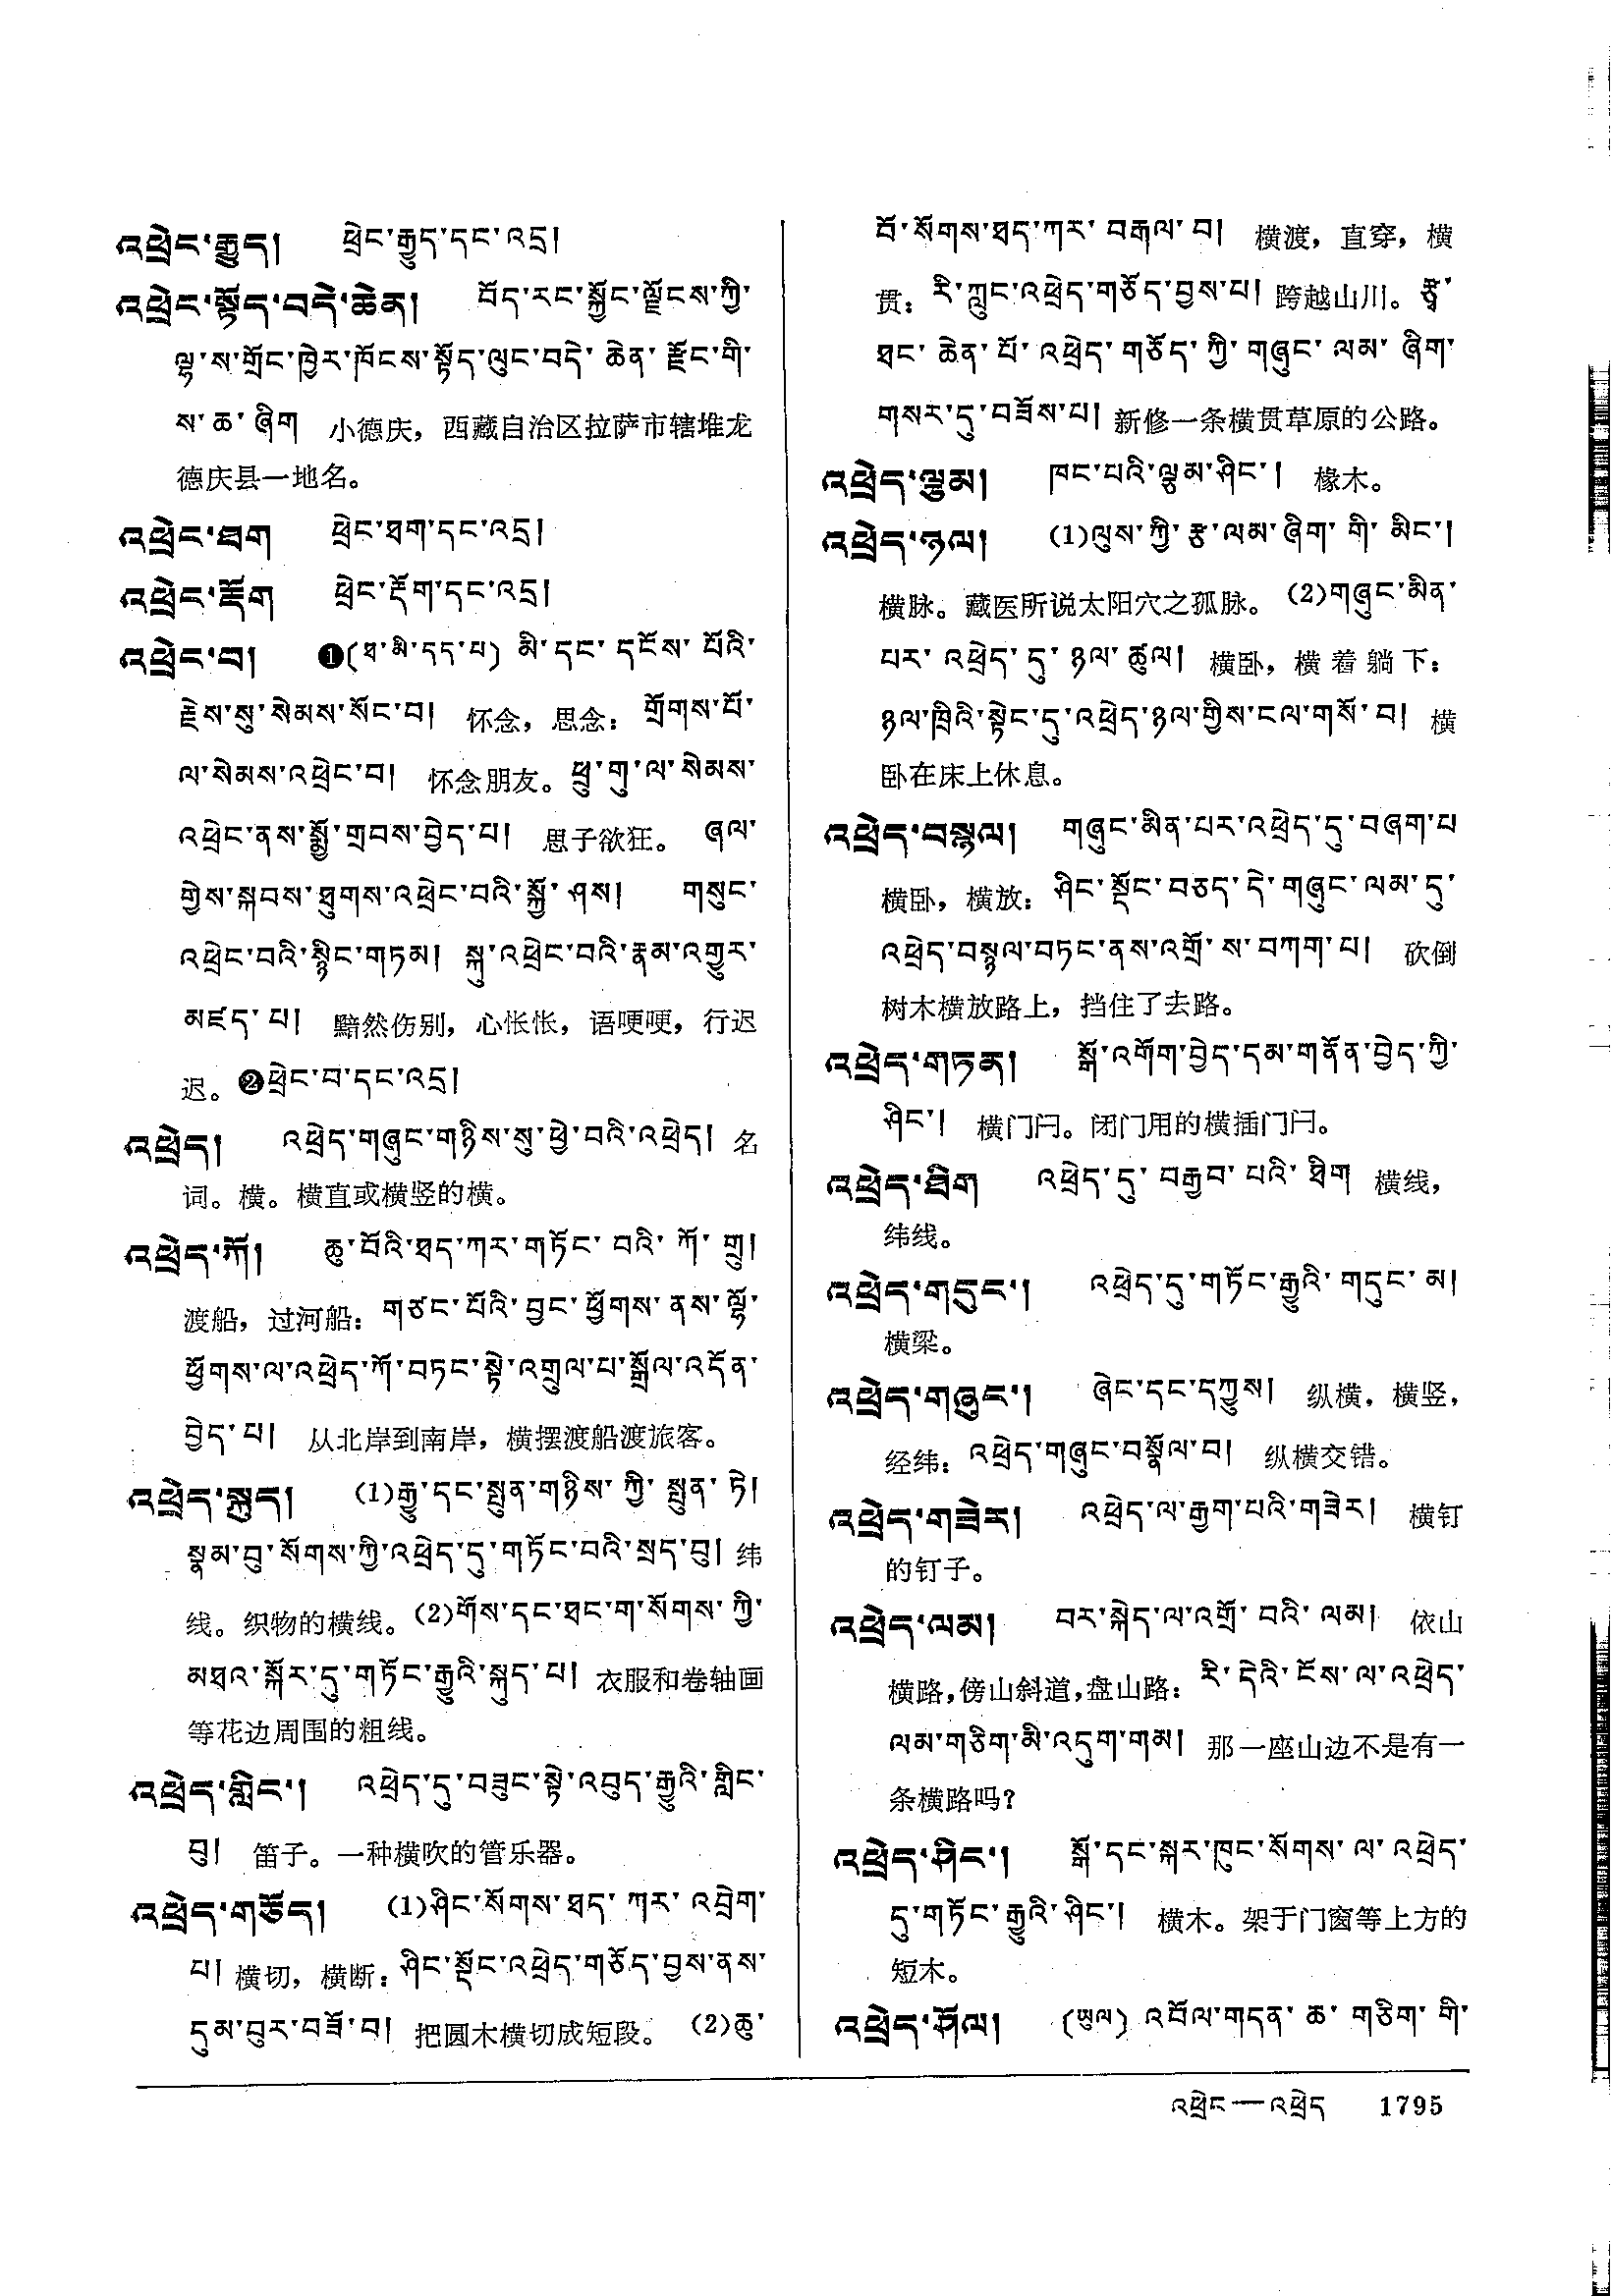 འཕྲེང་རྒྱུད། ཕྲེང་རྒྱུད་དང་འདྲ།
འཕྲེང་སྟོད་བདེ་ཆེན། བོད་རང་སྐྱོང་ལྗོངས་ཀྱི་
ལྷ་ས་གྲོང་ཁྱེར་ཁོངས་སྟོད་ལུང་བདེ་ཆེན་རྫོང་གི་
ས་ཆ་ཞིག 小德庆，西藏自治区拉萨市辖堆龙
德庆县一地名。
འཕྲེང་ཐག ཕྲེང་ཐག་དང་འདྲ།
འཕྲེང་རྡོག ཕྲེང་རྡོག་དང་འདྲ།
འཕྲེང་བ། ❶(ཐ་མི་དད་པ) མི་དང་དངོས་པོའི་
རྗེས་སུ་སེམས་སོང་བ། 怀念，思念：གྲོགས་པོ་
ལ་སེམས་འཕྲེང་བ། 怀念朋友。ཕྲུ་གུ་ལ་སེམས་
འཕྲེང་ནས་སྨྱོ་གྲབས་བྱེད་པ། 思子欲狂。 ཞལ་
གྱེས་སྐབས་ཐུགས་འཕྲེང་བའི་སྐྱོ་ཤས། གསུང་
འཕྲེང་བའི་སྙིང་གཏམ། སྐུ་འཕྲེང་བའི་རྣམ་འགྱུར་
མཛད་པ། 黯然伤别，心怅怅，语哽哽，行迟
迟。❷ཕྲེང་བ་དང་འདྲ།
འཕྲེད། འཕྲེད་གཞུང་གཉིས་སུ་ཕྱེ་བའི་འཕྲེད། 名
词。横。横直或横竖的横。
འཕྲེད་ཀོ། ཆུ་བོའི་ཐད་ཀར་གཏོང་བའི་ཀོ་གྲུ།
渡船，过河船：གཙང་པོའི་བྱང་ཕྱོགས་ནས་ལྷོ་
ཕྱོགས་ལ་འཕྲེད་ཀོ་བཏང་སྟེ་འགྲུལ་པ་སྒྲོལ་འདོན་
བྱེད་པ། 从北岸到南岸，横摆渡船渡旅客。
འཕྲེད་སྐུད། (1)རྒྱུ་དང་སྤུན་གཉིས་ཀྱི་སྤུན་ཏེ།
སྣམ་བུ་སོགས་ཀྱི་འཕྲེད་དུ་གཏོང་བའི་སྲད་བུ། 纬
线。织物的横线。(2)གོས་དང་ཐང་ག་སོགས་ཀྱི་
མཐའ་སྐོར་དུ་གཏོང་རྒྱུའི་སྐུད་པ། 衣服和卷轴画
等花边周围的粗线。
འཕྲེད་གླིང་། འཕྲེད་དུ་བཟུང་སྟེ་འབུད་རྒྱུའི་གླིང་
བུ། 笛子。一种横吹的管乐器。
འཕྲེད་གཅོད། (1)ཤིང་སོགས་ཐད་ཀར་འབྲེག་
པ། 横切，横断：ཤིང་སྡོང་འཕྲེད་གཅོད་བྱས་ནས་
དུམ་བུར་བཟོ་བ། 把圆木横切成短段。 (2)ཆུ་
བོ་སོགས་ཐད་ཀར་བརྒལ་བ། 横渡，直穿，横
贯：རི་ཀླུང་འཕྲེད་གཅོད་བྱས་པ། 跨越山川。རྩྭ་
ཐང་ཆེན་པོ་འཕྲེད་གཅོད་ཀྱི་གཞུང་ལམ་ཞིག་
གསར་དུ་བཟོས་པ། 新修一条横贯草原的公路。
འཕྲེད་ལྕམ། ཁང་པའི་ལྕམ་ཤིང་། 椽木。
འཕྲེད་ཉལ། (1)ལུས་ཀྱི་རྩ་ལམ་ཞིག་གི་མིང་།
横脉。藏医所说太阳穴之孤脉。(2)གཞུང་མིན་
པར་འཕྲེད་དུ་ཉལ་ཚུལ། 横卧，横着躺下：
ཉལ་ཁྲིའི་སྟེང་དུ་འཕྲེད་ཉལ་གྱིས་ངལ་གསོ་བ། 横
卧在床上休息。
འཕྲེད་བསྙལ། གཞུང་མིན་པར་འཕྲེད་དུ་བཞག་པ
横卧，横放：ཤིང་སྡོང་བཅད་དེ་གཞུང་ལམ་དུ་
འཕྲེད་བསྙལ་བཏང་ནས་འགྲོ་ས་བཀག་པ། 砍倒
树木横放路上，挡住了去路。
འཕྲེད་གཏན། སྒོ་འགོག་བྱེད་དམ་གནོན་བྱེད་ཀྱི་
ཤིང་། 横门闩。闭门用的横插门闩。
འཕྲེད་ཐིག འཕྲེད་དུ་བརྒྱབ་པའི་ཐིག 横线，
纬线。
འཕྲེད་གདུང་། འཕྲེད་དུ་གཏོང་རྒྱུའི་གདུང་མ།
横梁。
འཕྲེད་གཞུང་། ཞེང་དང་དཀྱུས། 纵横，横竖，
经纬：འཕྲེད་གཞུང་བསྣོལ་བ། 纵横交错。
འཕྲེད་གཟེར། འཕྲེད་ལ་རྒྱག་པའི་གཟེར། 横钉
的钉子。
འཕྲེད་ལམ། བར་སྐེད་ལ་འགྲོ་བའི་ལམ། 依山
横路，傍山斜道，盘山路：རི་དེའི་ངོས་ལ་འཕྲེད་
ལམ་གཅིག་མི་འདུག་གམ། 那一座山边不是有一
条横路吗？
འཕྲེད་ཤིང་། སྒོ་དང་སྐར་ཁུང་སོགས་ལ་འཕྲེད་
དུ་གཏོང་རྒྱུའི་ཤིང་། 横木。架于门窗等上方的
短木。
འཕྲེད་ཤོལ། (ཡུལ) འབོལ་གདན་ཆ་གཅིག་གི་
འཕྲེང—འཕྲེད 1795